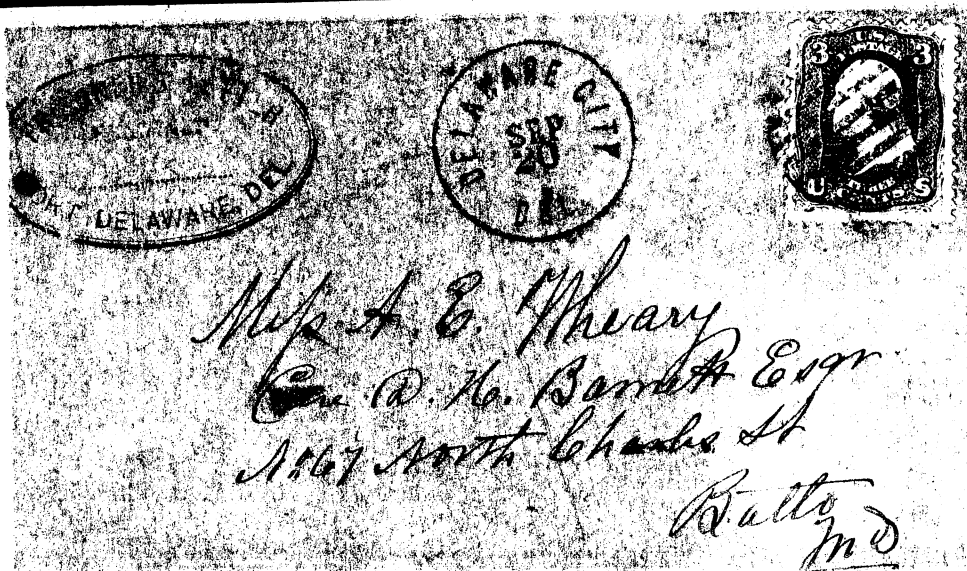 DELAWARE, DEL
DELAWARE CITY
SEP
20
DEL.
3 3
U S
Miss A. E. Wheary
Care D. H. Barnett Esqr
No 67 North Charles St
Balto
Md